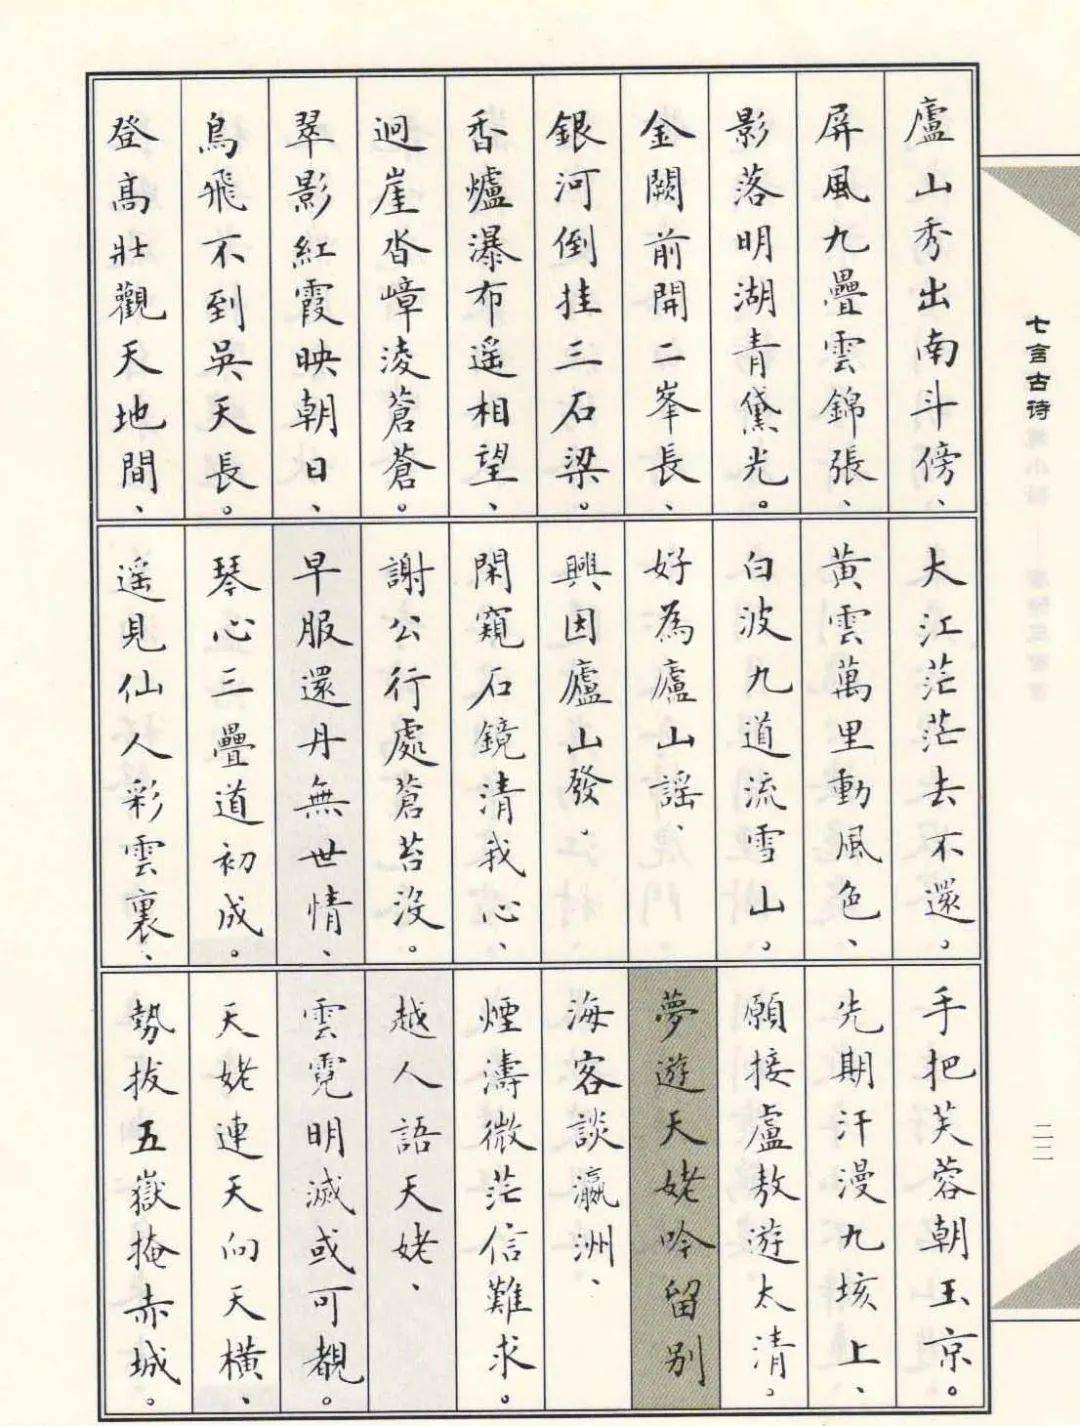 廬山秀出南斗傍、
屏風九疊雲錦張、
影落明湖青黛光。
金闕前開二峯長、
銀河倒挂三石梁。
香爐瀑布遥相望、
迴崖沓嶂淩蒼蒼。
翠影紅霞映朝日、
鳥飛不到吳天長。
登高壯觀天地間、
大江茫茫去不還。
黃雲萬里動風色、
白波九道流雪山。
好為廬山謡、
興因廬山發。
閑窺石鏡清我心、
謝公行處蒼苔没。
早服還丹無世情、
琴心三疊道初成。
遥見仙人彩雲裏、
手把芙蓉朝玉京。
先期汗漫九垓上、
願接盧敖遊太清。
夢遊天姥吟留别
海客談瀛洲、
煙濤微茫信難求。
越人語天姥、
雲霓明滅或可覩。
天姥連天向天橫、
勢拔五嶽掩赤城。
七言古诗
二二